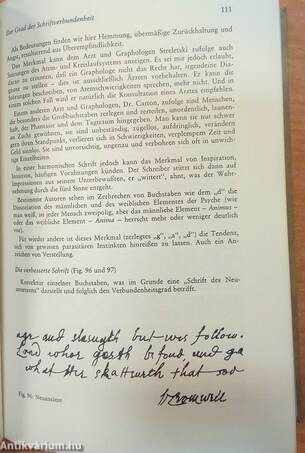 Der Grad der Schriftverbundenheit
111
Als Bedeutungen finden wir hier Hemmung, übermäßige Zurückhaltung und
Angst, resultierend aus Überempfindlichkeit.
Das Merkmal kann dem Arzt und Graphologen Streletski zufolge auch
Störungen des Atem- und Kreislaufsystems anzeigen. Es sei mir jedoch erlaubt,
daran zu erinnern, daß ein Graphologe nicht das Recht hat, irgendeine Dia-
gnose zu stellen – dies ist ausschließlich Ärzten vorbehalten. Er kann jedoch
von Atemschwierigkeiten sprechen, wo immer er sie entdeckt, und sollte in
einem solchen Fall zu der Konsultation eines Arztes empfehlen.
Einem anderen Arzt und Graphologen, Dr. Carton, zufolge sind Menschen,
die besonders die Großbuchstaben zerlegen und zerteilen, unordentlich, launen-
haft, der Phantasie und dem Tagtraum hingegeben. Man kann sie nur schwer
an Zucht gewöhnen, sie sind unbeständig, zügellos, aufdringlich, verändern
ihren Standpunkt, verlieren sich in Schwierigkeiten, verplempern Zeit und
Geld zwanglos. Sie sind unvorsichtig, ungenau und verbohren sich oft in unwich-
tige Einzelheiten.
In einer harmonischen Schrift jedoch kann das Merkmal von Inspiration,
Intuition, häufigen Vorahnungen künden. Der Schreiber stützt sich dann auf
Impressionen aus seinem Unterbewußten, er „wittert", ahnt, was der Wahr-
nehmung durch die fünf Sinne entgeht.
Bestimmte Autoren sehen im Zerbrechen von Buchstaben wie dem „d" die
Dissoziation des männlichen und des weiblichen Elementes der Psyche (wie
man weiß, ist jeder Mensch zweipolig, aber das männliche Element – Animus –
oder das weibliche Element – Anima – herrscht mehr oder weniger deutlich
vor).
Für wieder andere ist dieses Merkmal (zerlegtes „g", „a", „d") die Tendenz,
sich gewissen parasitären Instinkten hinreißen zu lassen. Auch ein An-
zeichen von Verstellung.
Die verbesserte Schrift (Fig. 96 und 97)
Korrektur einzelner Buchstaben, was im Grunde eine „Schrift des Neu-
ansetzens" darstellt und folglich den Verbundenheitsgrad betrifft.
and but was follow.
and
what that
Fig. 96: Neuansätze
Antikvárium.hu